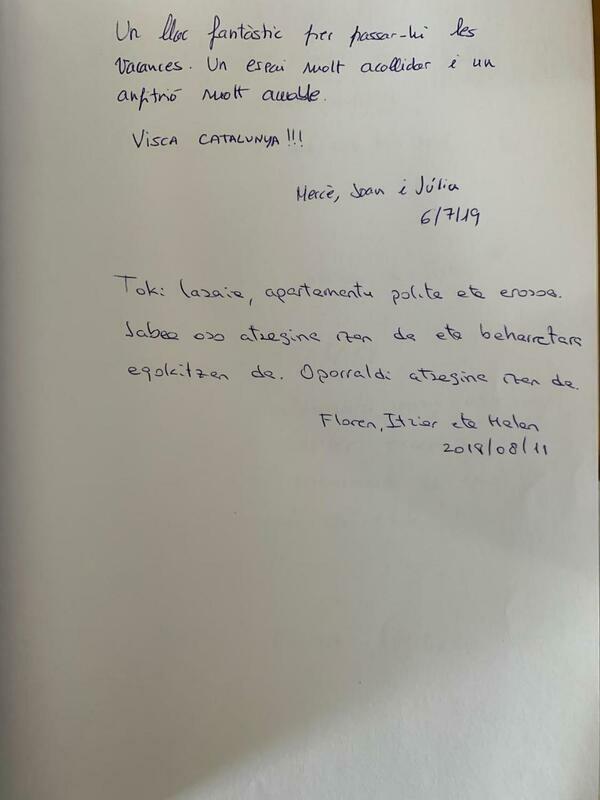 Un lloc fantàstic per passar-hi les
vacances. Un espai molt acollidor i un
anfitrió molt amable.
VISCA CATALUNYA!!!
Mercè, Joan i Júlia
6/7/19
Toki lasaia, apartamentu polita eta erosoa.
Jabea oso atsegina izan da eta beharretara
egokitzen da. Oporraldi atsegina izan da.
Floren, Itziar eta Malen
2019/08/11